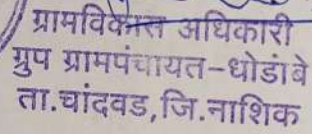 ग्रामविकास अधिकारी
ग्रुप ग्रामपंचायत-धोडांबे
ता.चांदवड,जि.नाशिक